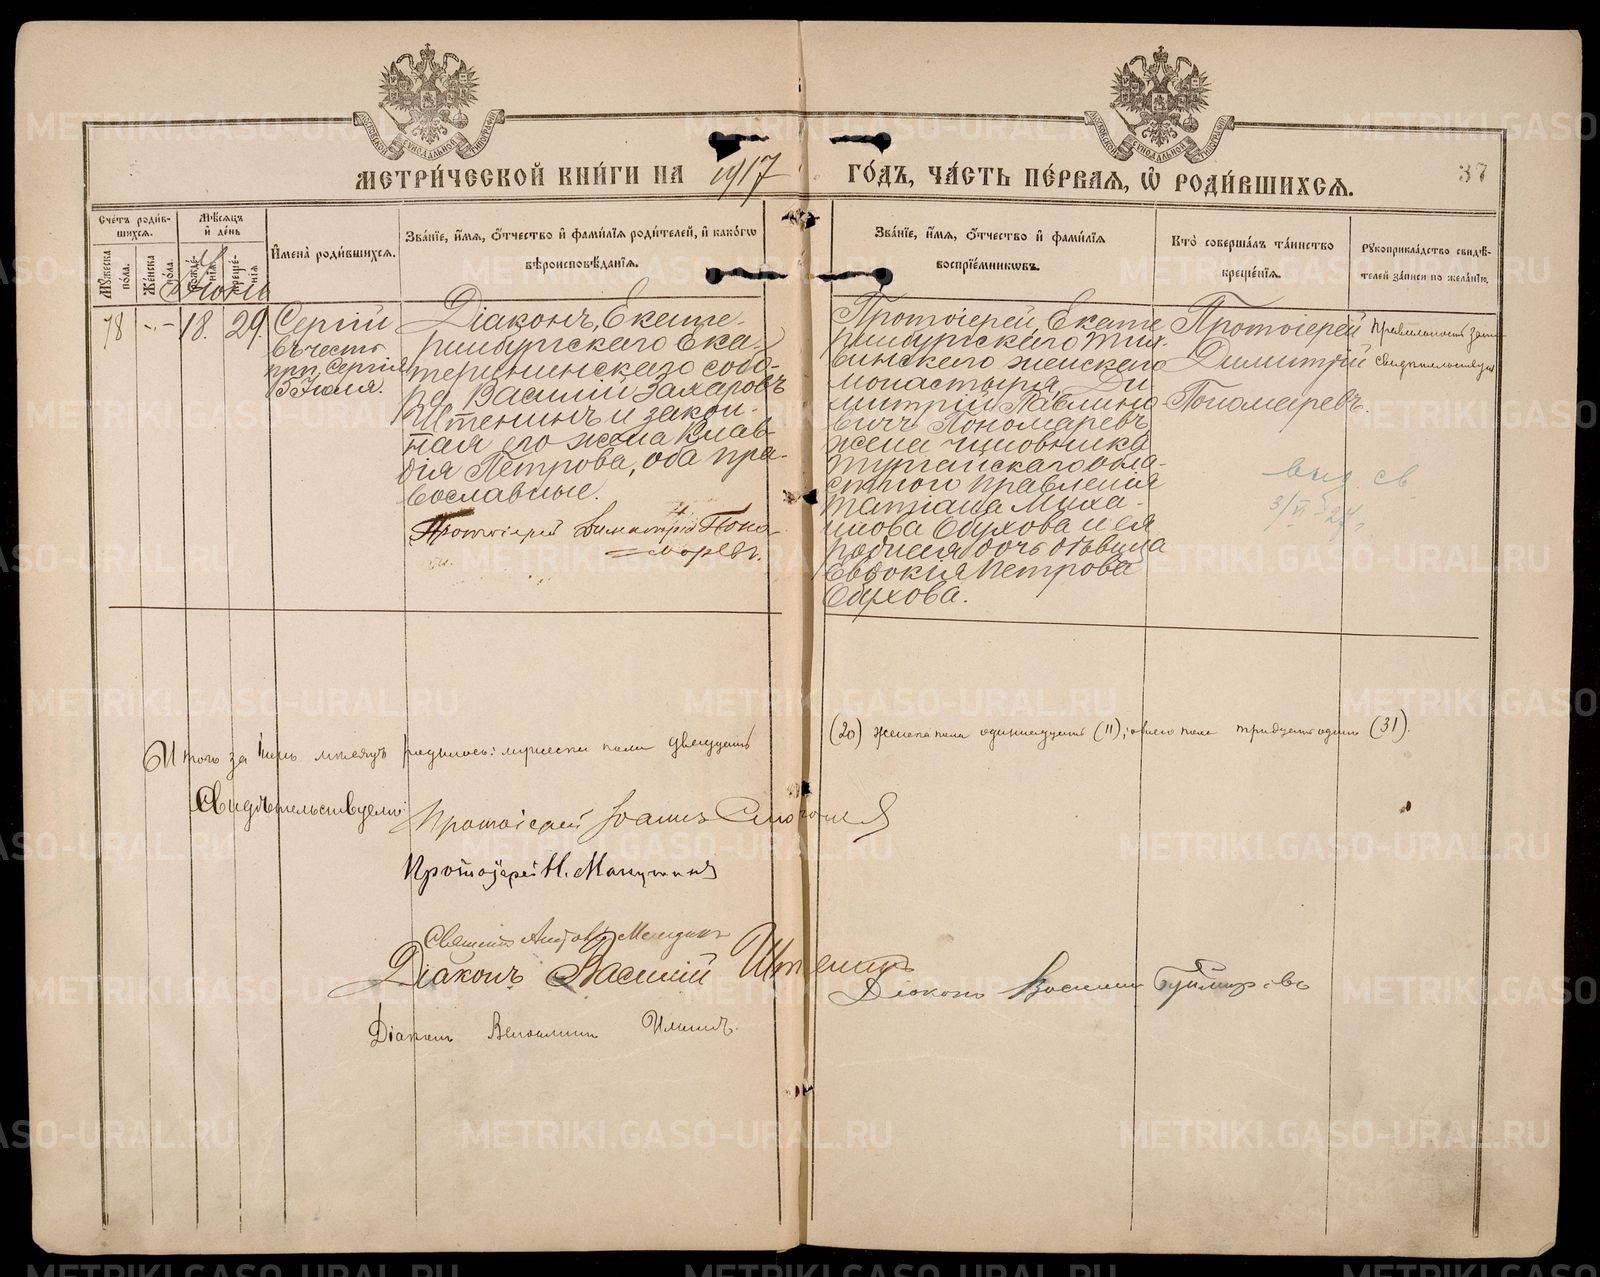 МЕТРИ́ЧЕСКОЙ КНИ́ГИ НА 1917 ГО́ДЪ, ЧА́СТЬ ПЕ́РВАЯ, Ѽ РОДИ́ВШИХСЯ.
37
Сче́тъ роди́в-
шихся.
Мꙋ́жеска по́ла.
Же́нска по́ла.
Мѣ́сяцъ и́ де́нь
рожде́нїя
креще́нїя
Іюнь
И҆мена̀ роди́вшихся.
Зва́нїе, и҆́мя, ѻ҆́тчество и҆ фами́лїя роди́телей, и҆ како́гѡ
вѣроисповѣ́данїя.
Зва́нїе, и҆́мя, ѻ҆́тчество и҆ фами́лїя
воспрїе́мникѡвъ.
Кто̀ соверша́лъ та́инство
креще́нїя.
Рꙋкоприкла́дство свидѣ́-
телей за́писи по жела́нїю.
78
18.
29.
Сергій
въ честь
прп. Сергія
5 Іюля.
Діаконъ, Екате-
ринбургскаго Ека-
терининскаго собо-
ра Василій Захаровъ
Иштенинъ и закон-
ная его жена Клав-
дія Петрова, оба пра-
вославные.
Протоіерей Димитрій Поно-
маревъ.
Протоіерей Екате
ринбургскаго Тих-
винскаго женскаго
монастыря, Ди
митрій Павлино-
вичъ Пономаревъ
жена чиновника
Тургайскаго обла-
стного правленія
Татіана Миха-
илова Обухова и ея
родная дочь дѣвица
Евдокія Петрова
Обухова.
Протоіерей
Димитрій
Пономаревъ.
выд. св.
Итого за Іюнь мѣсяцъ родилось: мужеска пола двадцать (20) женска пола одиннадцать (11); обоего пола тридцать одинъ (31).
Свидѣтельствуемъ:
Протоіерей Іоаннъ
Протоіерей Н.
Діаконъ Василій
Діаконъ Василій
Діаконъ
METRIKI.GASO-URAL.RU